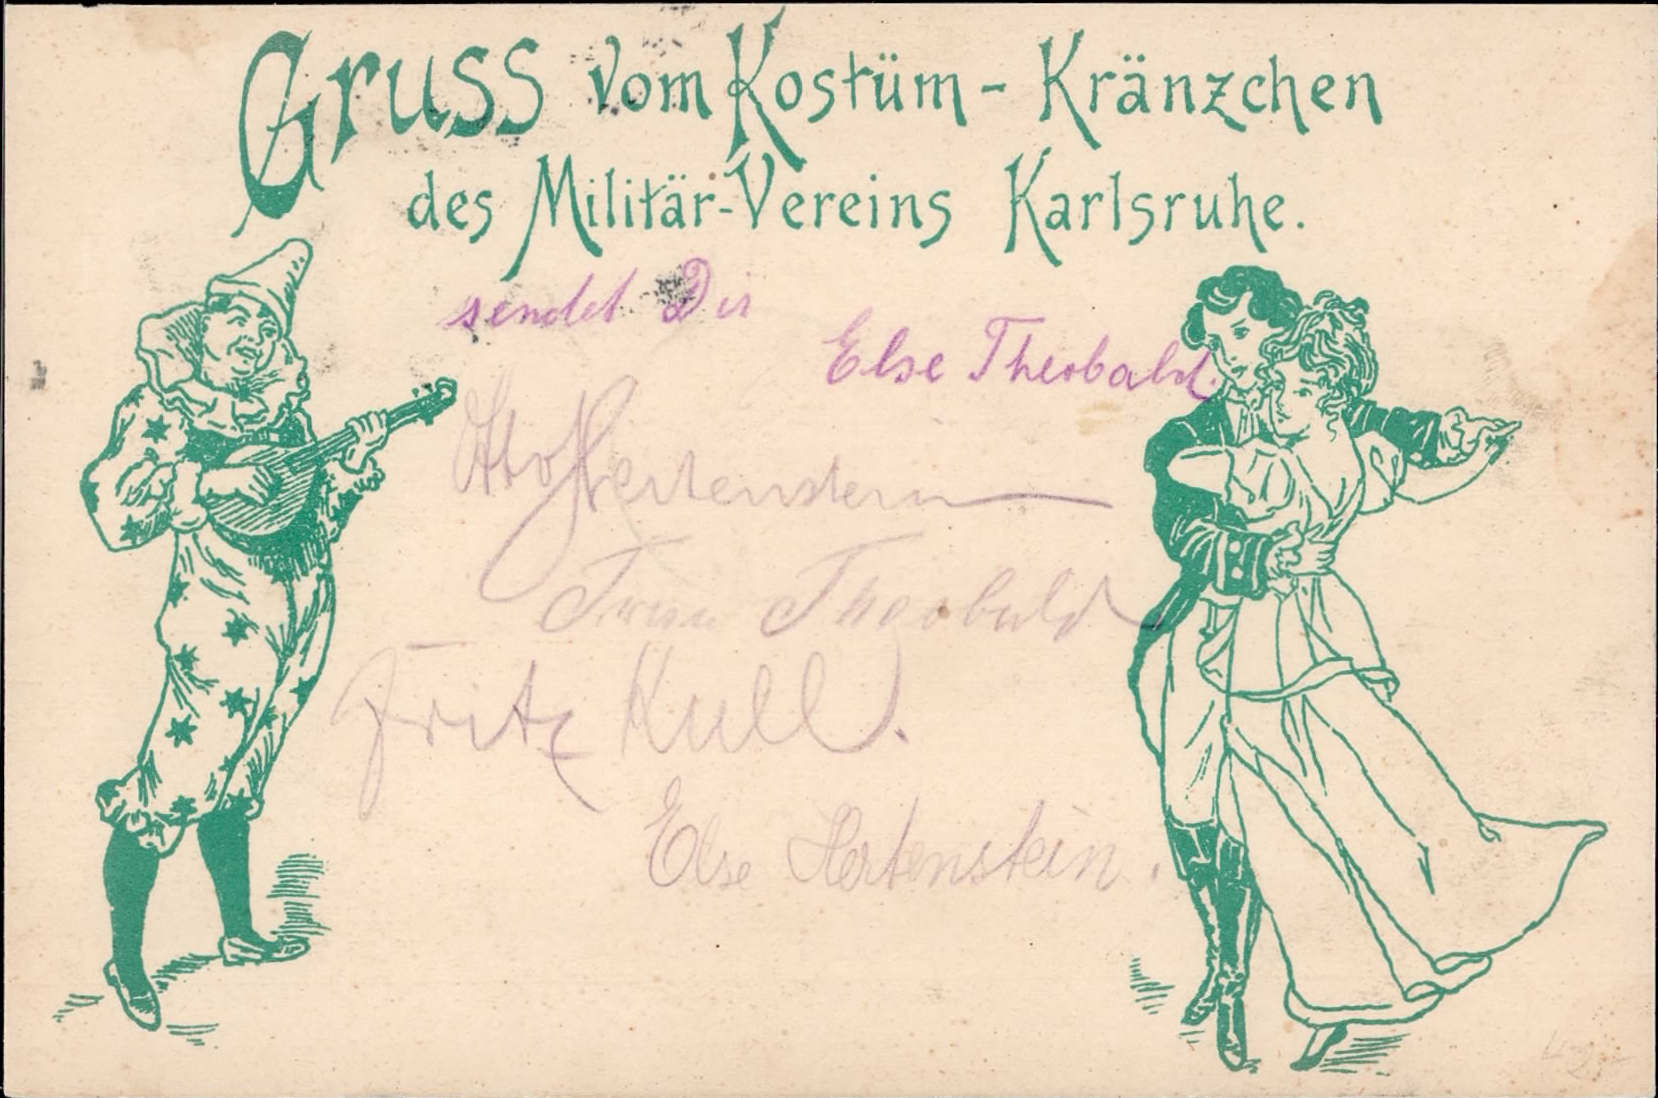 Gruss vom Kostüm-Kränzchen
des Militär-Vereins Karlsruhe.
sendet Dir
Else Theobald.
Otto Hertenstein
Theobald
Fritz Kull.
Else Hertenstein.